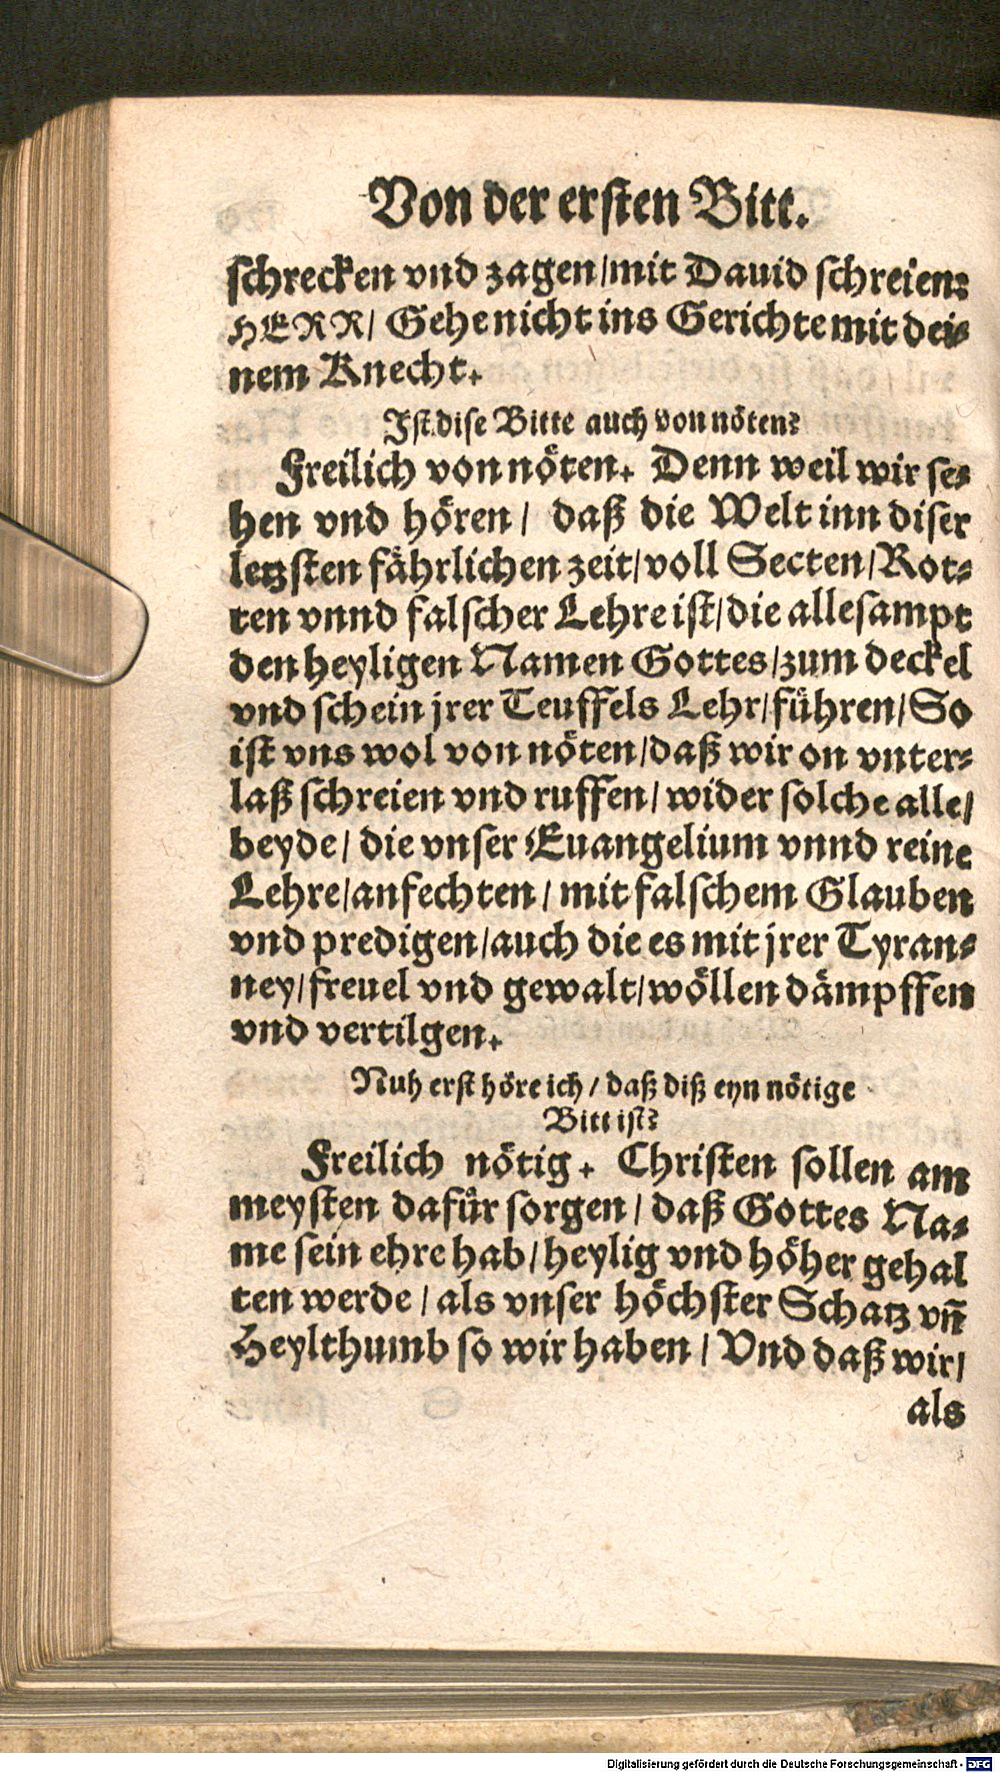 Von der ersten Bitt.
schrecken vnd zagen/mit Dauid schreien:
HERR/ Gehe nicht ins Gerichte mit dei-
nem Knecht.
Jst dise Bitte auch von nöten?
Freilich von nöten. Denn weil wir se-
hen vnd hören/ daß die Welt inn diser
letzsten fährlichen zeit/voll Secten/Rot-
ten vnnd falscher Lehre ist/die allesampt
den heyligen Namen Gottes/zum deckel
vnd schein jrer Teuffels Lehr/führen/So
ist vns wol von nöten/daß wir on vnter-
laß schreien vnd ruffen/wider solche alle/
beyde/ die vnser Euangelium vnnd reine
Lehre/anfechten/ mit falschem Glauben
vnd predigen/auch die es mit jrer Tyran-
ney/freuel vnd gewalt/wöllen dämpffen
vnd vertilgen.
Nuh erst höre ich/ daß diß eyn nötige
Bitt ist?
Freilich nötig. Christen sollen am
meysten dafür sorgen/ daß Gottes Na-
me sein ehre hab/heylig vnd höher gehal
ten werde/ als vnser höchster Schatz vñ
Heylthumb so wir haben/ Vnd daß wir/
als
Digitalisierung gefördert durch die Deutsche Forschungsgemeinschaft - DFG